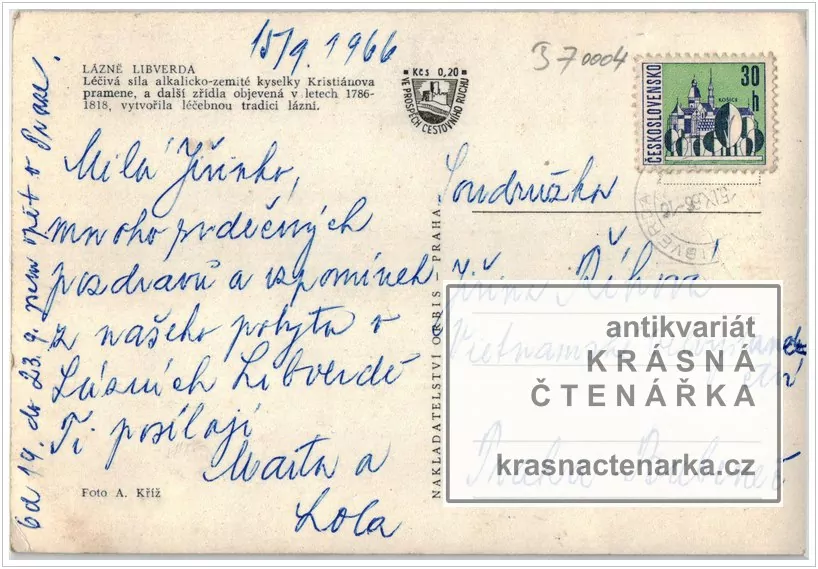 15/9. 1966
37 0004
LÁZNĚ LIBVERDA
Léčivá síla alkalicko-zemité kyselky Kristiánova
pramene, a další zřídla objevená v letech 1786-
1818, vytvořila léčebnou tradici lázní.
Kčs 0,20
VE PROSPĚCH CESTOVNÍHO RUCHU
ČESKOSLOVENSKO
30 h
KOŠICE
Milá Jiřinko,
mnoho srdečných
pozdravů a vzpomínek
z našeho pobytu v
Lázních Libverdě
Ti posílají
Marta a
Lola
od 19. do 23.9. jsem opět v Praze.
Foto A. Kříž
NAKLADATELSTVÍ ORBIS – PRAHA
Soudružka
Jiřina Říhová
antikvariát
KRÁSNÁ
ČTENÁŘKA
krasnactenarka.cz